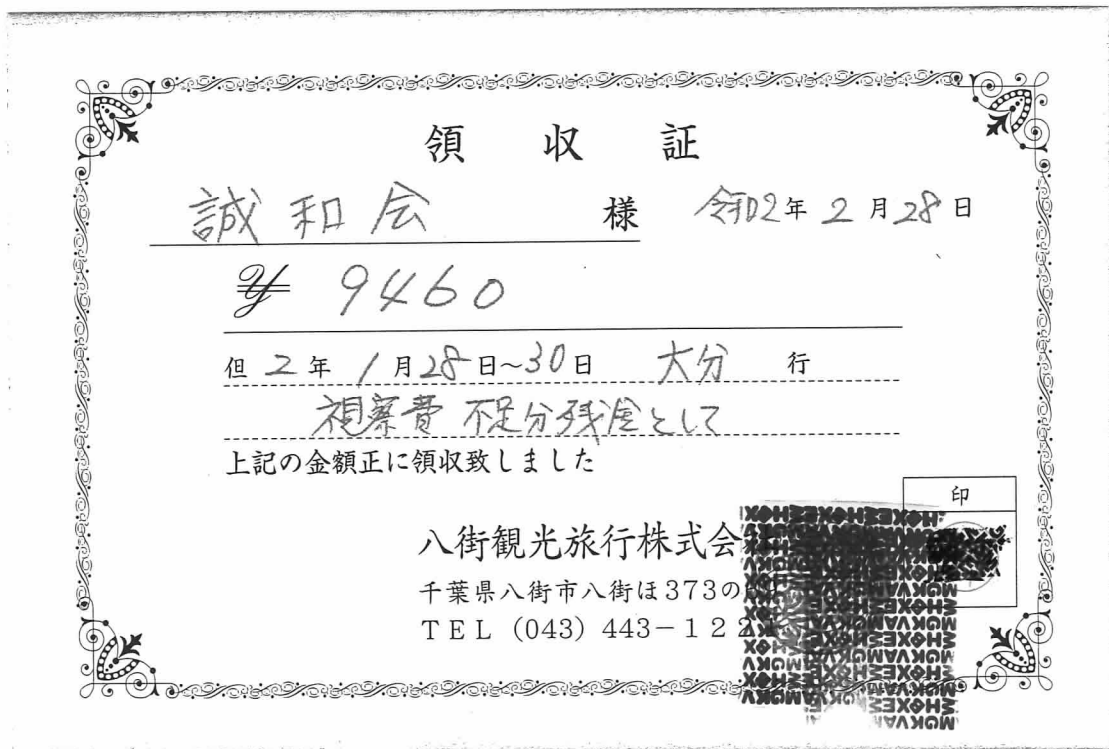 領収証
誠和会 様 令和2年2月28日
¥ 9460
但 2年1月28日~30日 大分 行
視察費 不足分残金として
上記の金額正に領収致しました
印
八街観光旅行株式会
千葉県八街市八街ほ373の
TEL (043) 443-122